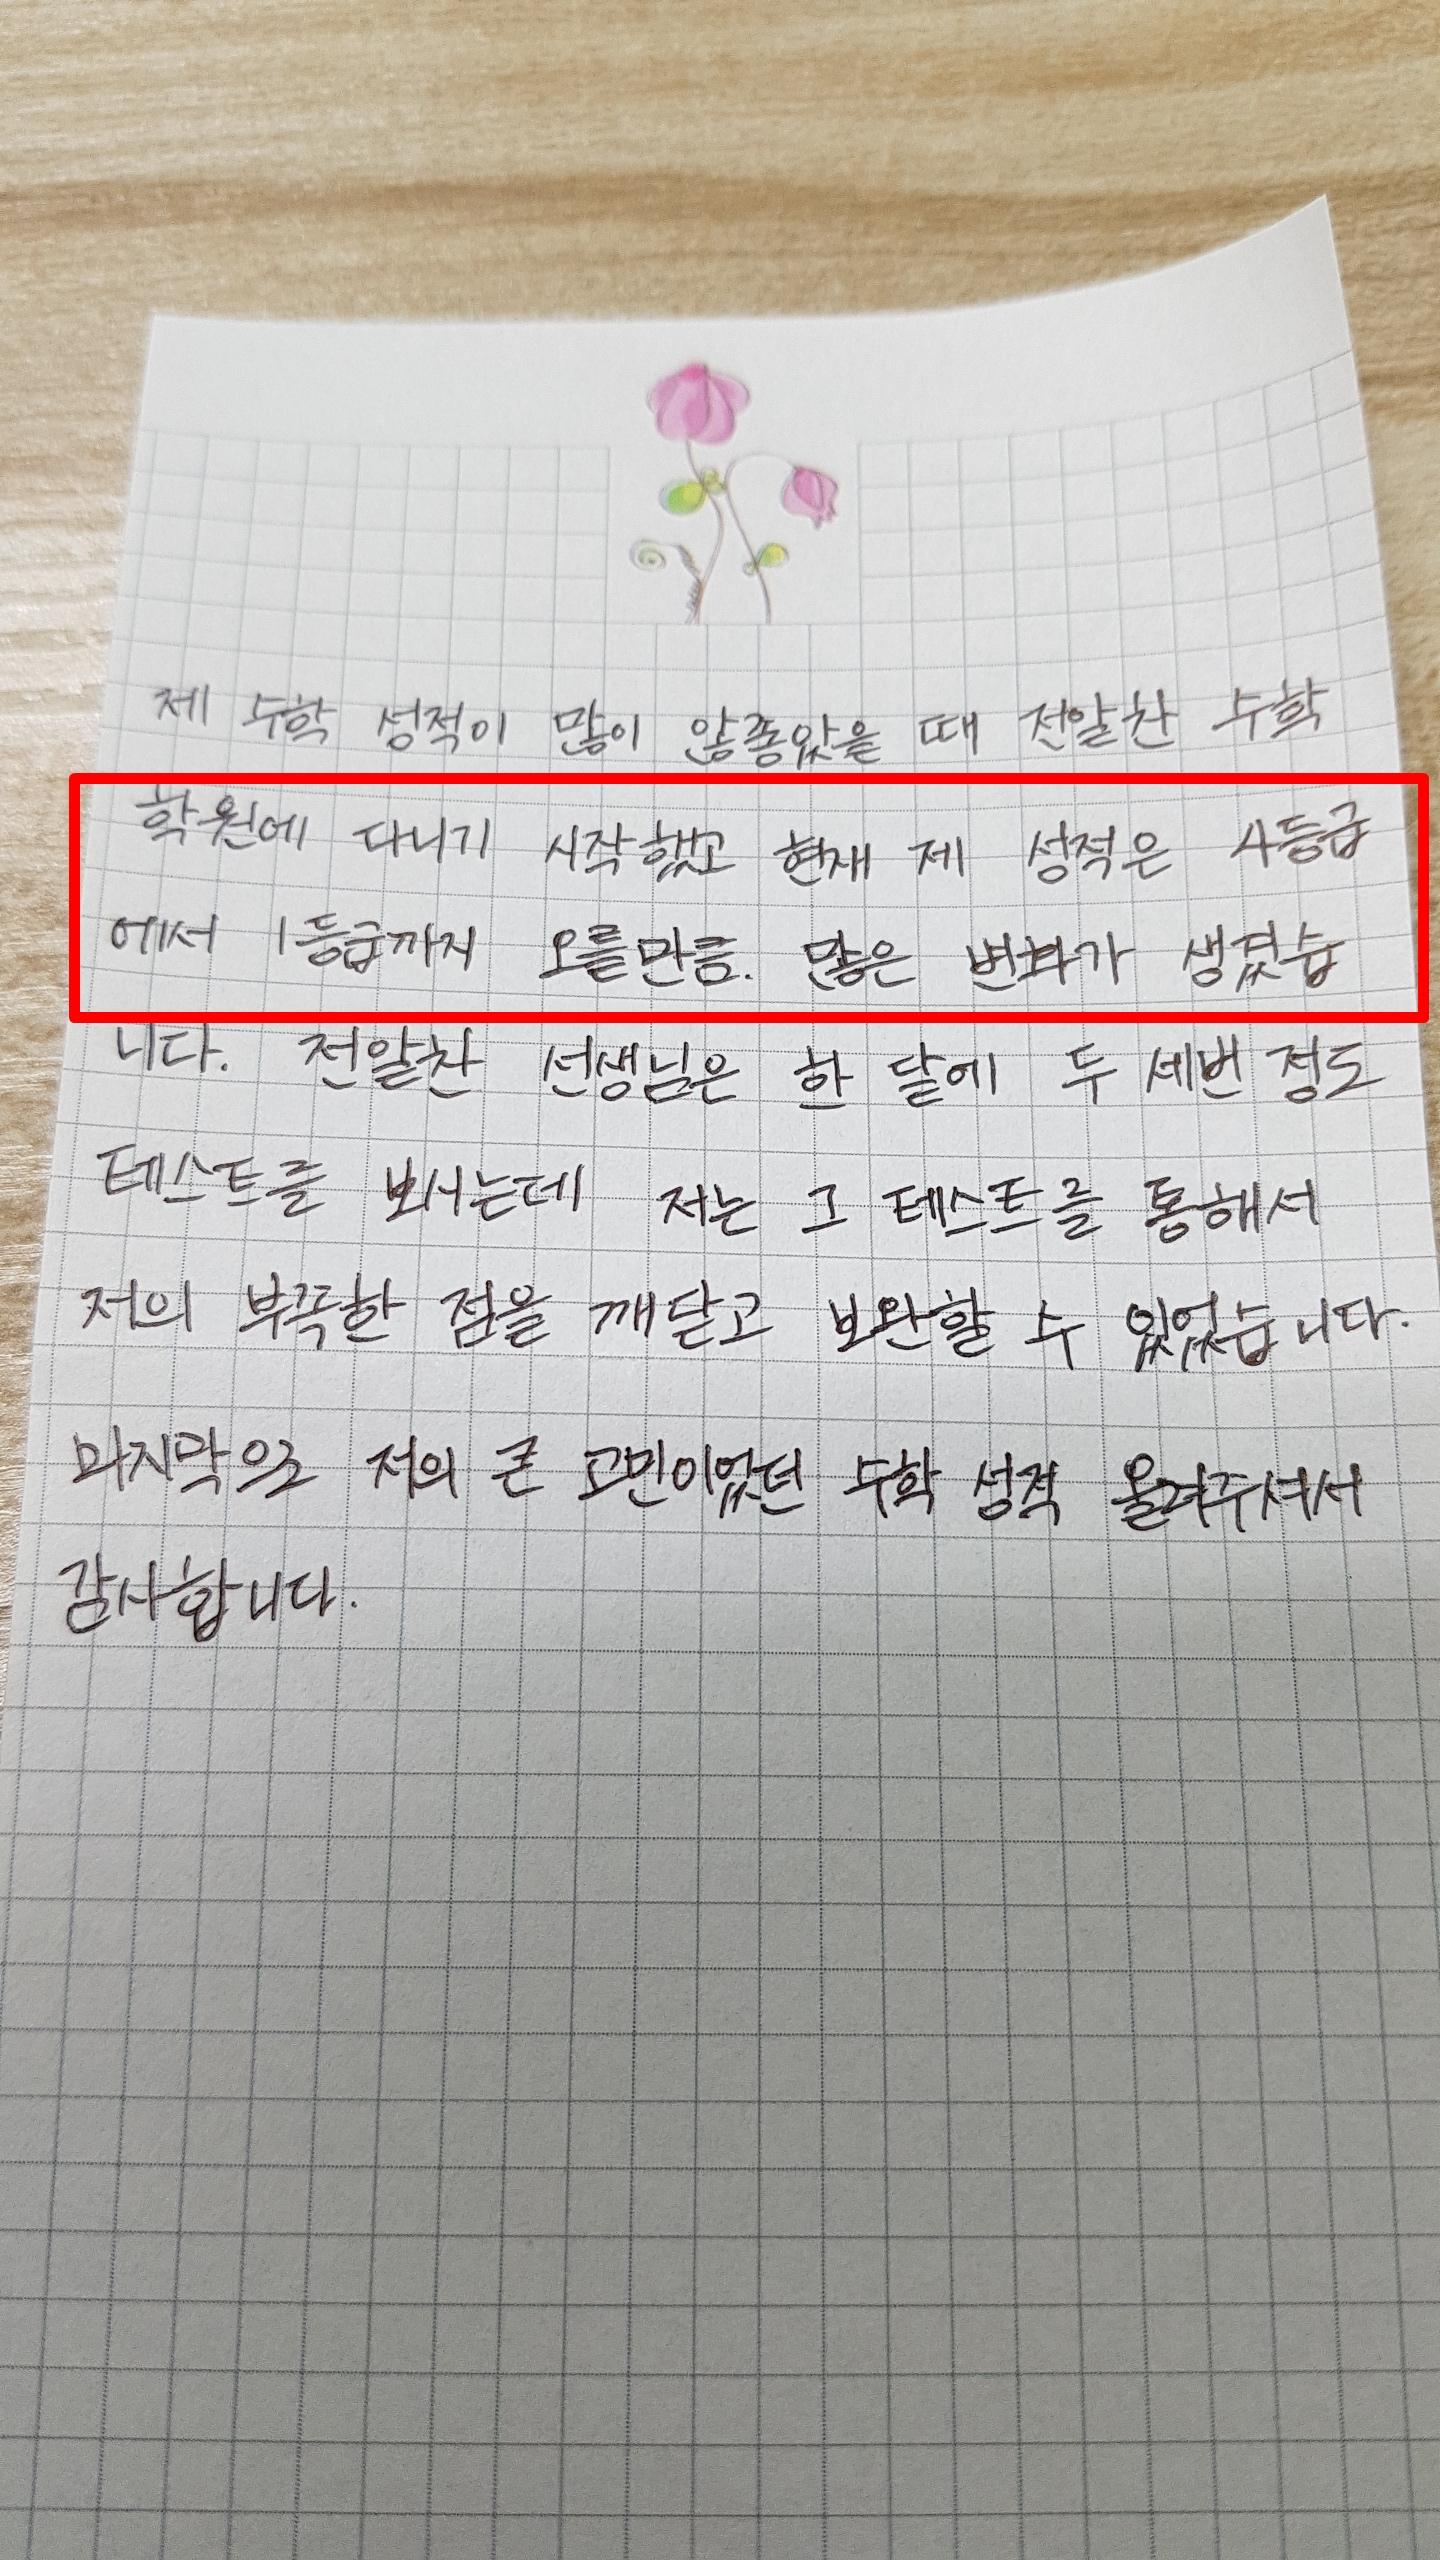 제 수학 성적이 많이 않좋았을 때 전알찬 수학
학원에 다니기 시작했고 현재 제 성적은 4등급
에서 1등급까지 오를만큼. 많은 변화가 생겼습
니다. 전알찬 선생님은 한 달에 두 세번 정도
테스트를 보시는데 저는 그 테스트를 통해서
저의 부족한 점을 깨닫고 보완할 수 있었습니다.
마지막으로 저의 큰 고민이었던 수학 성적 올려주셔서
감사합니다.